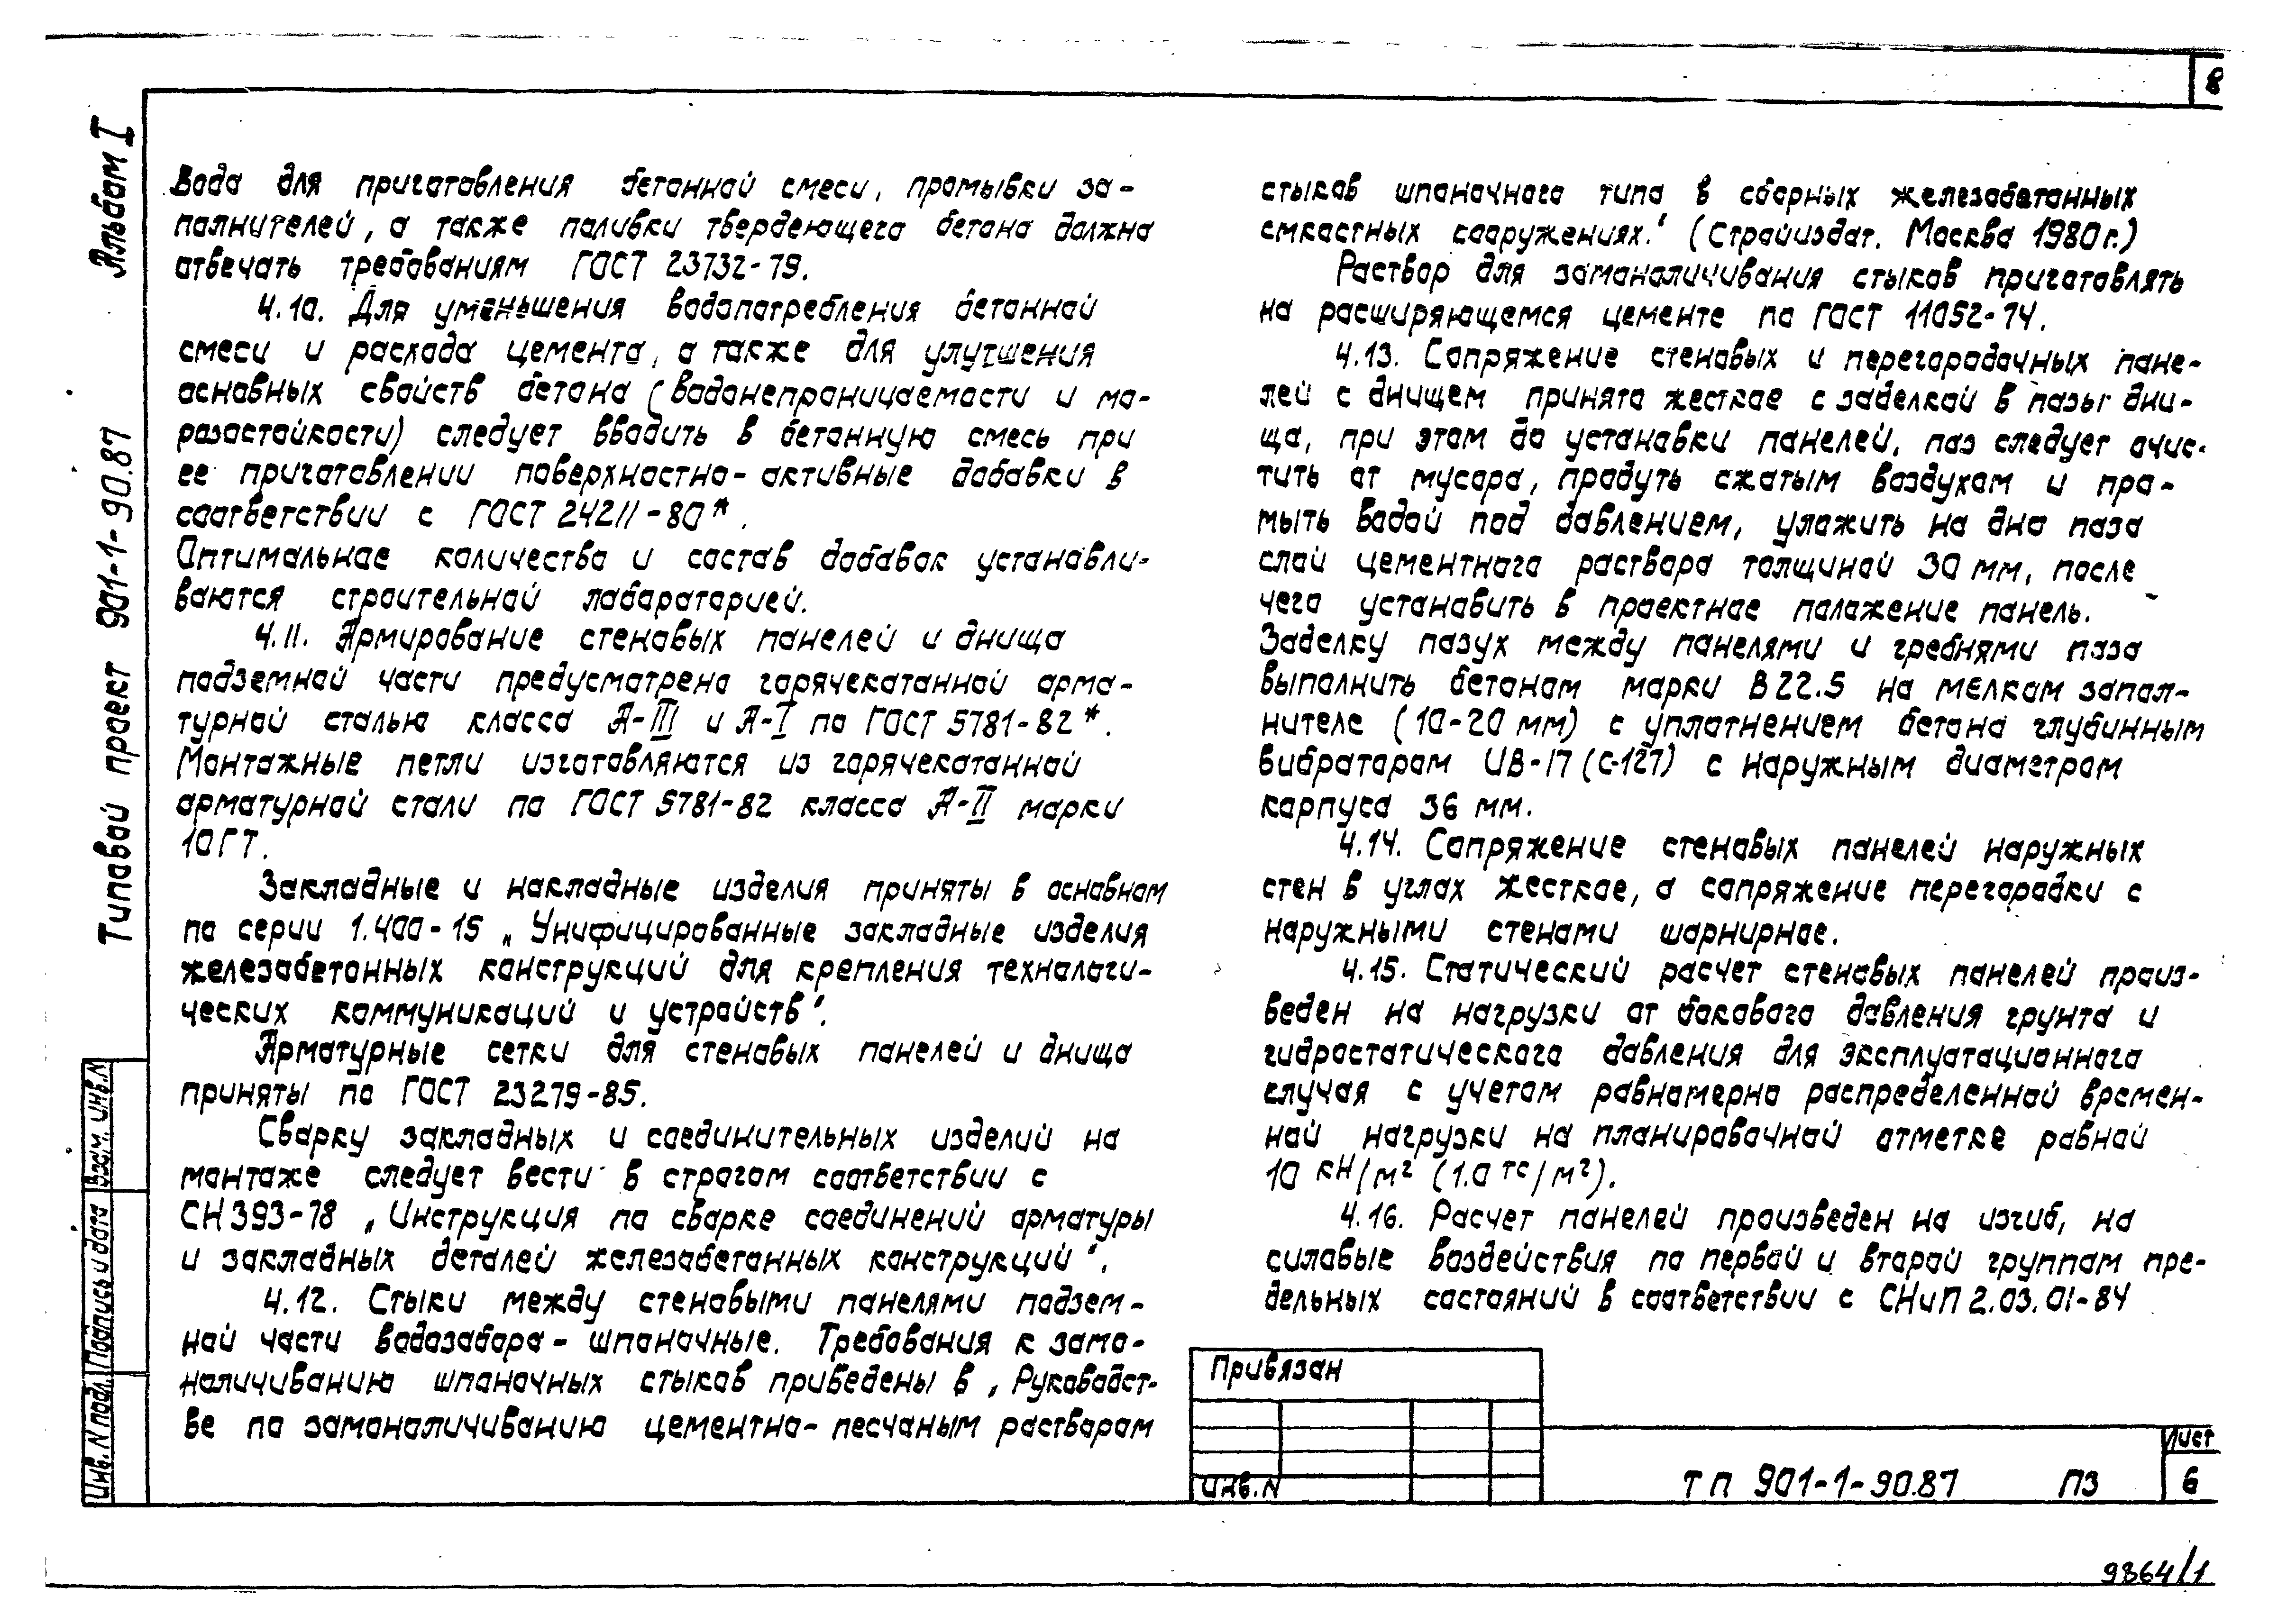 8
Альбом I
Типовой проект 901-1-90.87
Вода для приготовления бетонной смеси, промывки за-
полнителей, а также поливки твердеющего бетона должна
отвечать требованиям ГОСТ 23732-79.
4.10. Для уменьшения водопотребления бетонной
смеси и расхода цемента, а также для улучшения
основных свойств бетона (водонепроницаемости и мо-
розостойкости) следует вводить в бетонную смесь при
ее приготовлении поверхностно-активные добавки в
соответствии с ГОСТ 24211-80*.
Оптимальное количество и состав добавок устанавли-
ваются строительной лабораторией.
4.11. Армирование стеновых панелей и днища
подземной части предусмотрено горячекатанной арма-
турной сталью класса А-III и А-I по ГОСТ 5781-82*.
Монтажные петли изготовляются из горячекатанной
арматурной стали по ГОСТ 5781-82 класса А-II марки
10ГТ.
Закладные и накладные изделия приняты в основном
по серии 1.400-15 „Унифицированные закладные изделия
железобетонных конструкций для крепления технологи-
ческих коммуникаций и устройств".
Арматурные сетки для стеновых панелей и днища
приняты по ГОСТ 23279-85.
Сварку закладных и соединительных изделий на
монтаже следует вести в строгом соответствии с
СН 393-78 „Инструкция по сварке соединений арматуры
и закладных деталей железобетонных конструкций".
4.12. Стыки между стеновыми панелями подзем-
ной части водозабора - шпоночные. Требования к замо-
ноличиванию шпоночных стыков приведены в „Руководст-
ве по замоноличиванию цементно-песчаным раствором
стыков шпоночного типа в сборных железобетонных
емкостных сооружениях." (Стройиздат. Москва 1980г.)
Раствор для замоноличивания стыков приготовлять
на расширяющемся цементе по ГОСТ 11052-74.
4.13. Сопряжение стеновых и перегородочных пане-
лей с днищем принято жесткое с заделкой в пазы дни-
ща, при этом до установки панелей, паз следует очис-
тить от мусора, продуть сжатым воздухом и про-
мыть водой под давлением, уложить на дно паза
слой цементного раствора толщиной 30 мм, после
чего установить в проектное положение панель.
Заделку пазух между панелями и гребнями паза
выполнить бетоном марки В 22.5 на мелком запол-
нителе (10-20 мм) с уплотнением бетона глубинным
вибратором ИВ-17 (С-127) с наружным диаметром
корпуса 36 мм.
4.14. Сопряжение стеновых панелей наружных
стен в углах жесткое, а сопряжение перегородки с
наружными стенами шарнирное.
4.15. Статический расчет стеновых панелей произ-
веден на нагрузки от бокового давления грунта и
гидростатического давления для эксплуатационного
случая с учетом равномерно распределенной времен-
ной нагрузки на планировочной отметке равной
10 кН/м² (1.0 тс/м²).
4.16. Расчет панелей произведен на изгиб, на
силовые воздействия по первой и второй группам пре-
дельных состояний в соответствии с СНиП 2.03.01-84
Взам. инв.N
Подпись и дата
Инв. N подл.
Привязан
Инв.N
ТП 901-1-90.87 ПЗ
Лист
6
9864/1